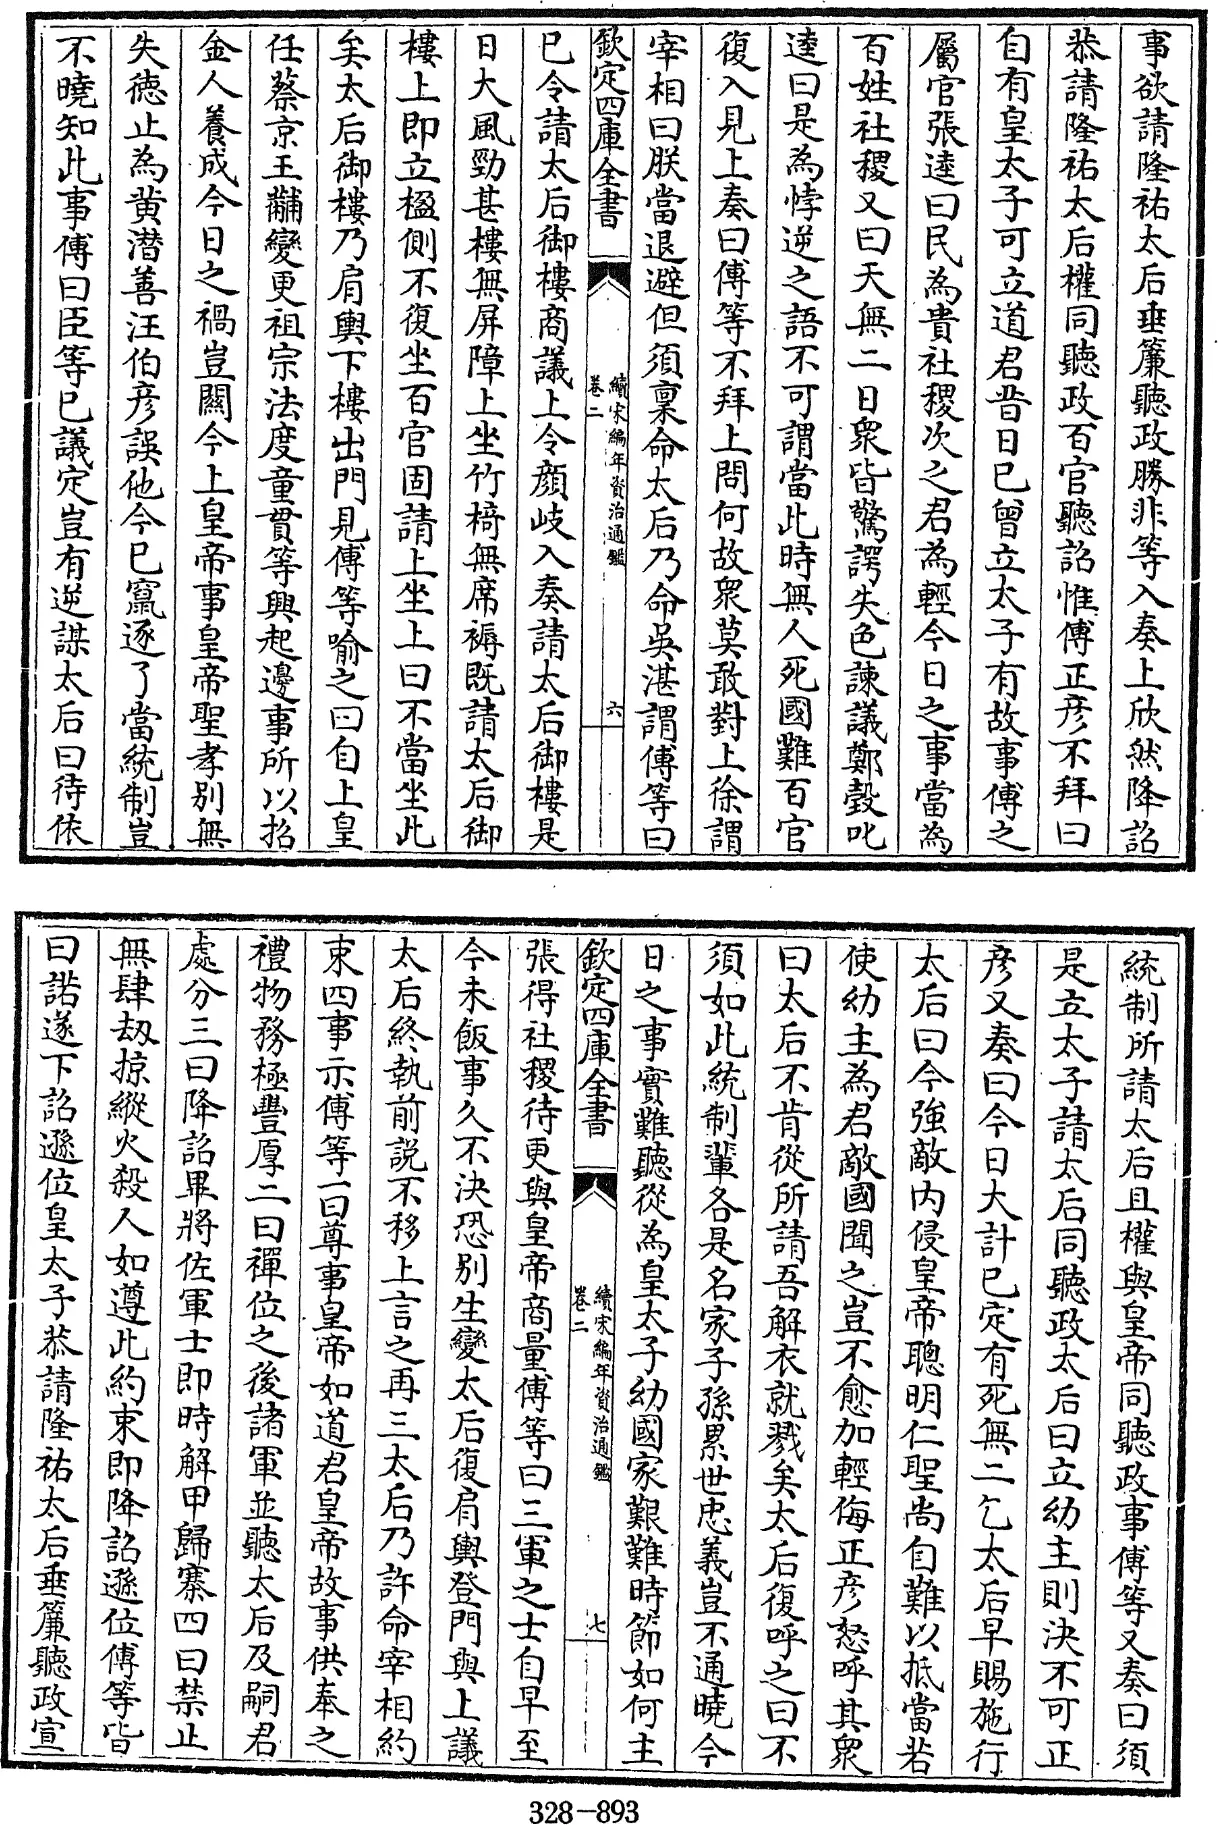 事欲請隆祐太后垂簾聽政勝非等入奏上欣然降詔
恭請隆祐太后權同聽政百官聽詔惟傅正彦不拜曰
自有皇太子可立道君昔日已曾立太子有故事傅之
屬官張逵曰民為貴社稷次之君為輕今日之事當為
百姓社稷又曰天無二日衆皆驚諤失色諫議鄭瑴叱
逵曰是為悖逆之語不可謂當此時無人死國難百官
復入見上奏曰傅等不拜上問何故衆莫敢對上徐謂
宰相曰朕當退避但須稟命太后乃命吳湛謂傅等曰
欽定四庫全書
續宋編年資治通鑑
卷二
六
已令請太后御樓商議上令顔岐入奏請太后御樓是
日大風勁甚樓無屏障上坐竹椅無席褥既請太后御
樓上即立楹側不復坐百官固請上坐上曰不當坐此
矣太后御樓乃肩輿下樓出門見傅等喻之曰自上皇
任蔡京王黼變更祖宗法度童貫等興起邊事所以招
金人養成今日之禍豈關今上皇帝事皇帝聖孝別無
失德止為黄潜善汪伯彦誤他今已竄逐了當統制豈
不曉知此事傅曰臣等已議定豈有逆謀太后曰待依
統制所請太后且權與皇帝同聽政事傅等又奏曰須
是立太子請太后同聽政太后曰立幼主則決不可正
彦又奏曰今日大計已定有死無二乞太后早賜施行
太后曰今強敵内侵皇帝聰明仁聖尚自難以抵當若
使幼主為君敵國聞之豈不愈加輕侮正彦怒呼其衆
曰太后不肯從所請吾解衣就戮矣太后復呼之曰不
須如此統制輩各是名家子孫累世忠義豈不通曉今
日之事實難聽從為皇太子幼國家艱難時節如何主
欽定四庫全書
續宋編年資治通鑑
卷二
七
張得社稷待更與皇帝商量傅等曰三軍之士自早至
今未飯事久不決恐別生變太后復肩輿登門與上議
太后終執前説不移上言之再三太后乃許命宰相約
束四事示傅等一曰尊事皇帝如道君皇帝故事供奉之
禮物務極豐厚二曰禪位之後諸軍並聽太后及嗣君
處分三曰降詔畢將佐軍士即時解甲歸寨四曰禁止
無肆刼掠縱火殺人如遵此約束即降詔遜位傅等皆
曰諾遂下詔遜位皇太子恭請隆祐太后垂簾聽政宣
328-893